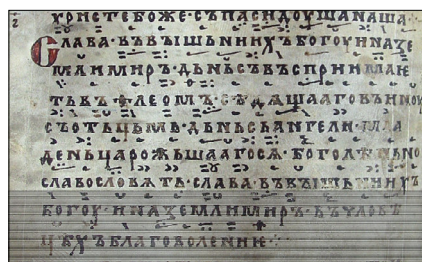 ХРИСТЕБОЖЕ·СЪПАСИДОУШАНАША
СЛАВА·ВЪВЪІШЬНИИХЪБОГОУИНАЗЕ
МЛИМИРЪ·ДЬНЬСЬВЪСПРИИМАІЄ
ТЬВ
СЪОТЬЦЬМЬ·ДЬНЬСЬАНГЕЛИ·МЛА
ДЕНЬЦАРОЖЬШААГОСѦ·БОГОЛѢПЬНО
СЛАВОСЛОВѦТЬ·СЛАВА·ВЪВЪІШЬНИИХЪ
БОГОУ·ИНАЗЕМЛИМИРЪ·ВЪЧЛОВѢ
ЦѢХЪБЛАГОВОЛЕНИІЄ